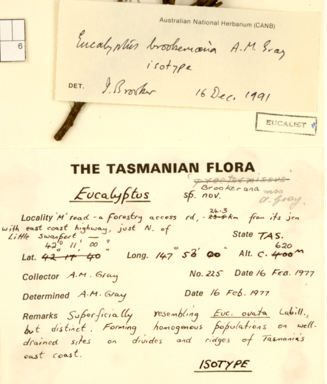 6
Australian National Herbarium (CANB)
Eucalyptus brookerana A.M. Gray
isotype
DET. I. Brooker 16 Dec. 1991
EUCALIST
THE TASMANIAN FLORA
Eucalyptus
Brookerana
sp. nov.
A. Gray
Locality 'M' road - a forestry access rd, - 26.5 km from its jcn
with east coast highway, just N. of
Little Swanport —
State TAS.
42° 11' 00"
620
Lat. 42 17 40" Long. 147° 50' 00" Alt. C. 400m
Collector A.M. Gray No. 225 Date 16 Feb. 1977
Determined A.M. Gray Date 16 Feb. 1977
Remarks Superficially resembling Euc. ovata Labill.,
but distinct. Forming homogenous populations on well-
drained sites on divides and ridges of Tasmania's
east coast.
ISOTYPE